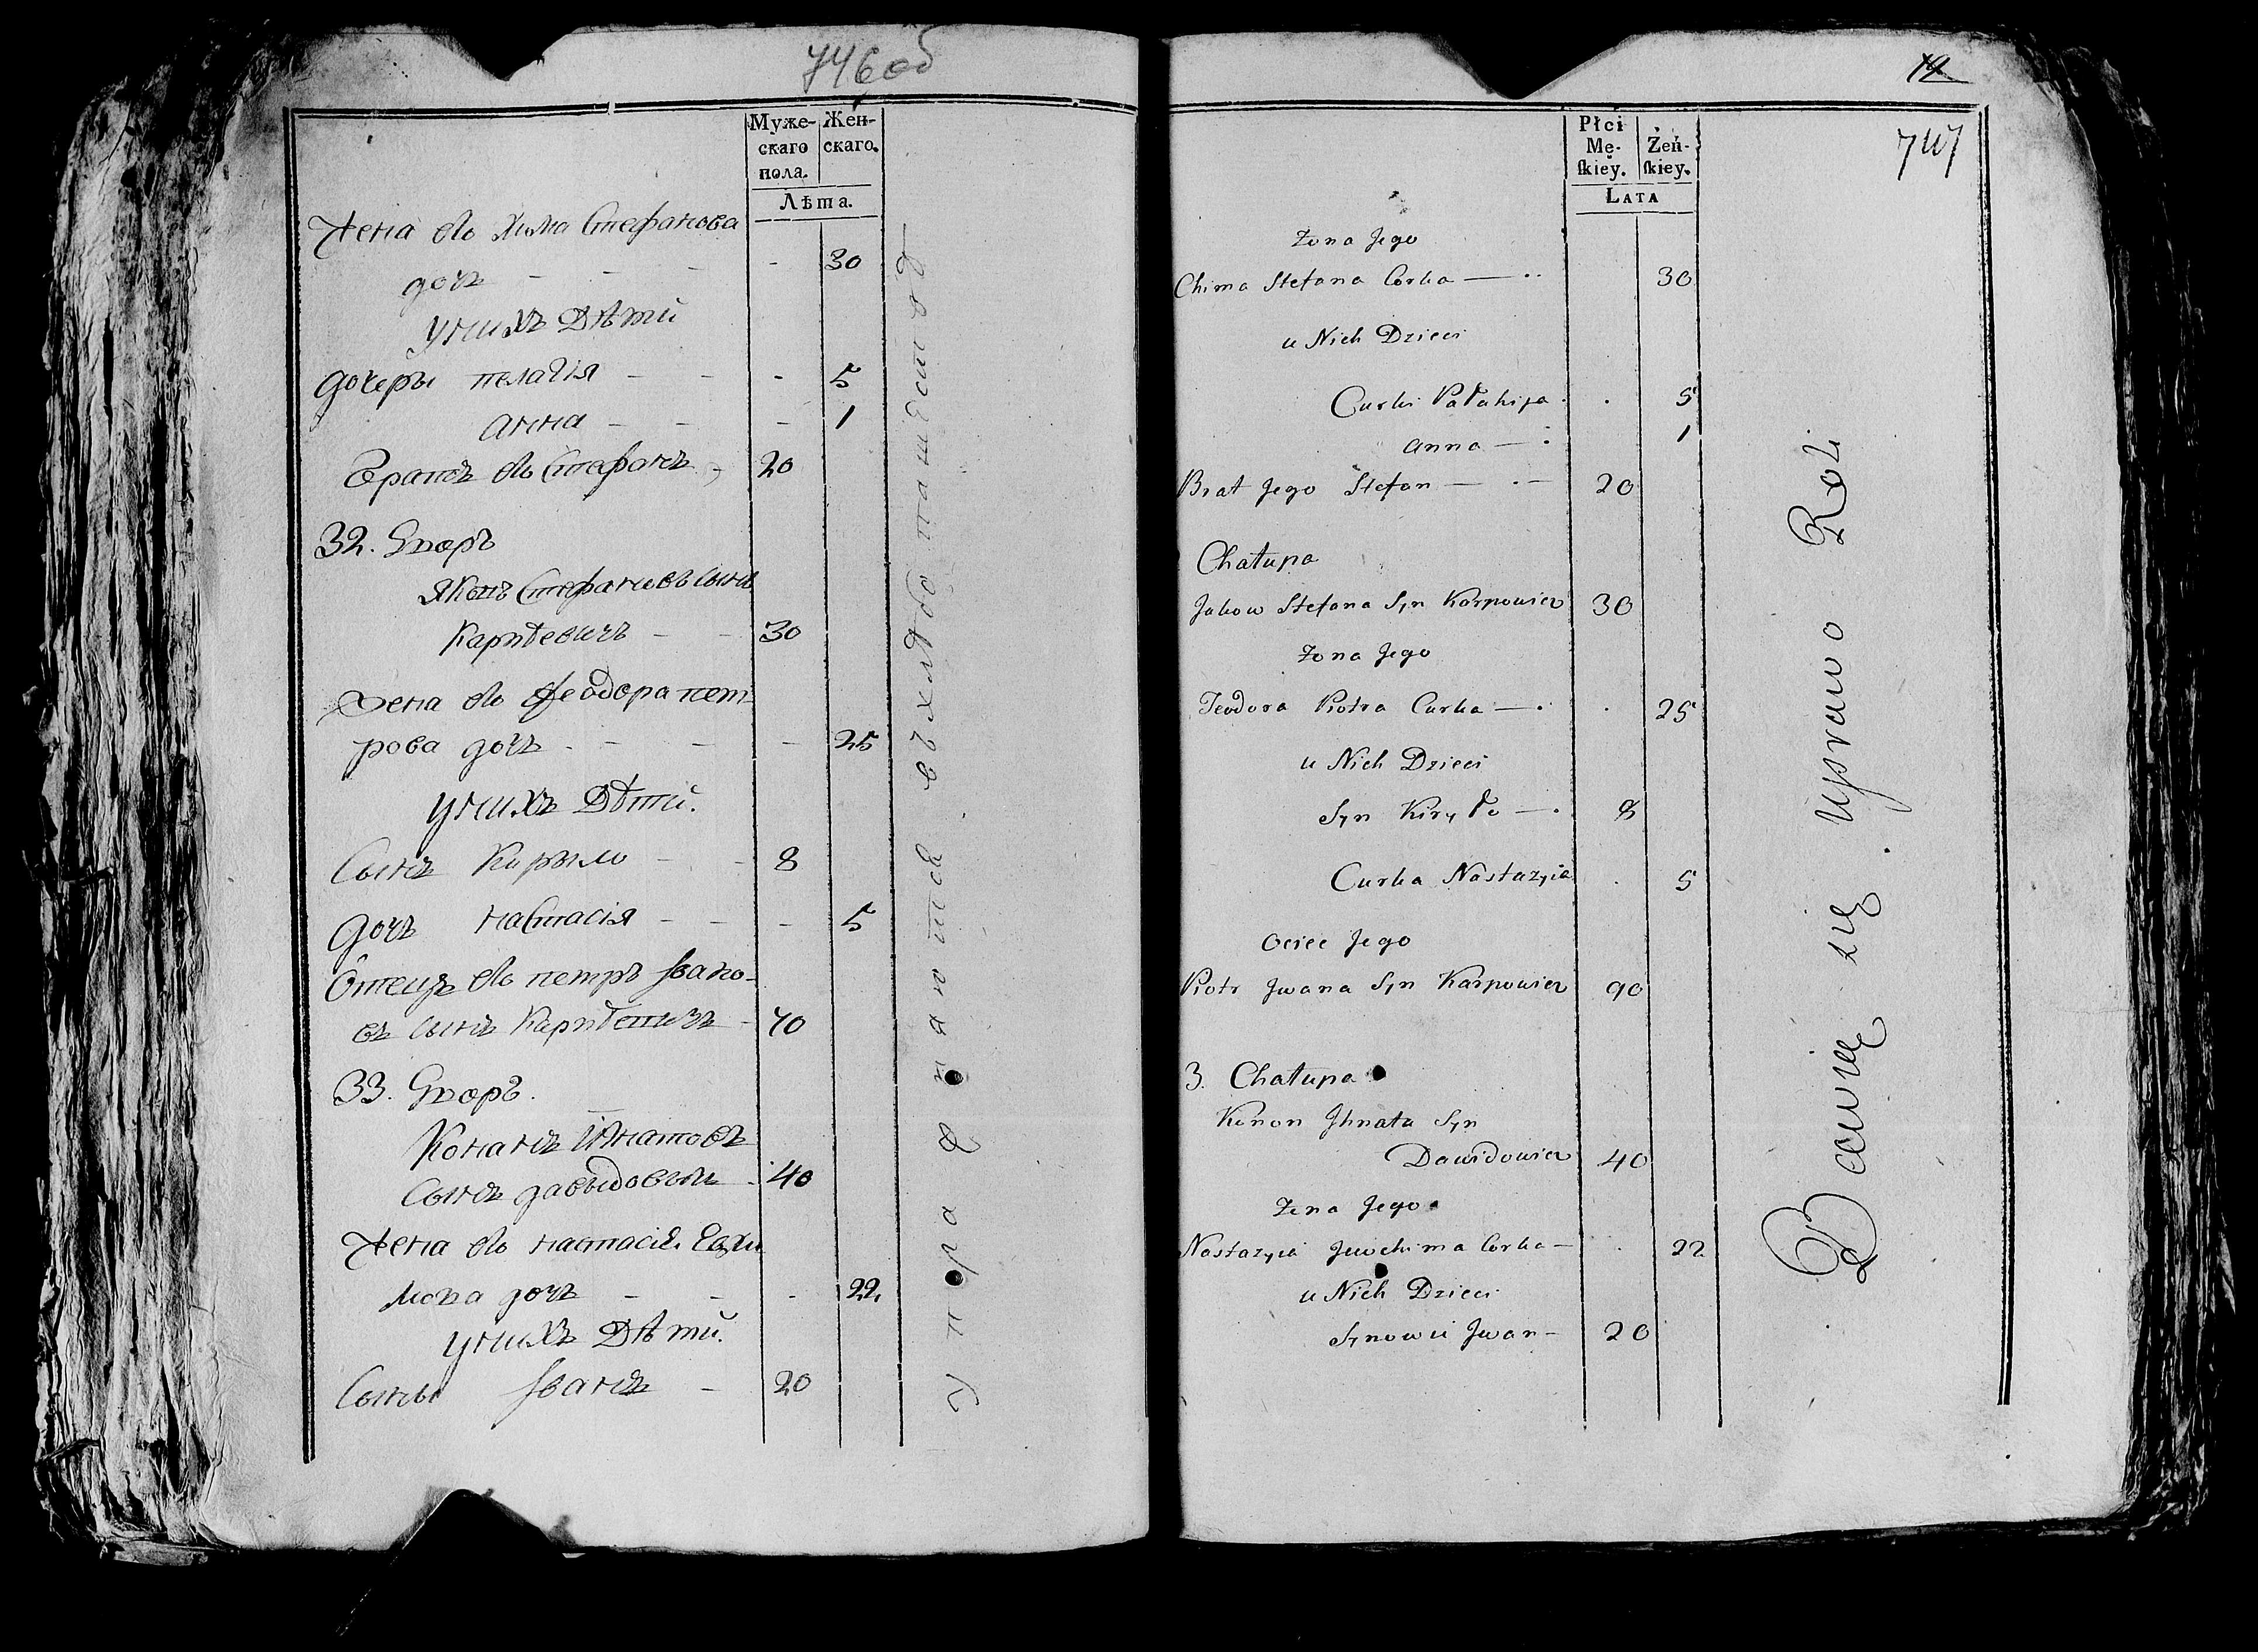 746 об
Муже-
скаго
пола.
Жен-
скаго.
Лѣта.
Жена его Хима Стефанова
дочь - - - - 30
У нихъ Дѣти
дочеры пелагія - - - 5
анна - - - 1
Братъ его Стефанъ - 20
32. Дворъ
Яковъ Стефановъ сынъ
Карпѣевичъ - - 30
Жена его Феодора пет-
рова дочь - - - - 25
У нихъ Дѣти.
Сынъ Кирыло - - 8
дочь настасія - - - 5
Отецъ его петръ Ивано-
въ сынъ - 90
33. Дворъ.
Кононъ Игнатовъ
Сынъ давыдовичъ - 40
Жена его настасія Евхи
мова дочь - - - 22
У нихъ Дѣти.
Сыны Иванъ - 20
19
747
Płci
Mę-
skiey.
Żeń-
skiey.
Lata
Żona Jego
Chima Stefana Corka — 30
u Nich Dzieci
Curki Pałahija 5
Anna — 1
Brat Jego Stefan — 20
Chałupa
Jakow Stefana Syn Karpowicz 30
Żona Jego
Teodora Piotra Curka — 25
u Nich Dzieci
Syn Kiryło — 8
Curka Nastazyia 5
Ociec Jego
Piotr Jwana Syn Karpowicz 90
3. Chałupa
Konon Jhnata Syn
Dawidowicz 40
Żona Jego
Nastazyia Jewchima Corka — 22
u Nich Dzieci
Synowie Jwan — 20
Bawią się uprawo Roli